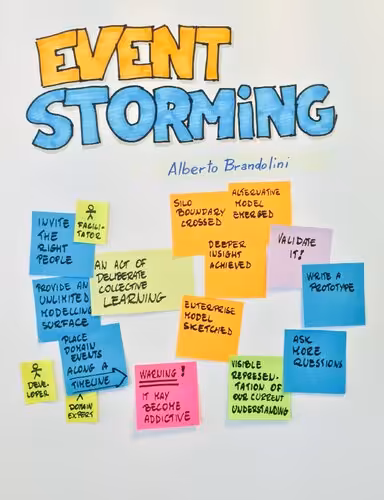 EVENT
STORMING
Alberto Brandolini
INVITE
THE
RIGHT
PEOPLE
FACILI-
TATOR
PROVIDE AN
UNLIMITED
MODELLING
SURFACE
PLACE
DOMAIN
EVENTS
ALONG A
TIMELINE
DEVE-
LOPER
DOMAIN
EXPERT
AN ACT OF
DELIBERATE
COLLECTIVE
LEARNING
SILO
BOUNDARY
CROSSED
ALTERNATIVE
MODEL
EMERGED
DEEPER
INSIGHT
ACHIEVED
ENTERPRISE
MODEL
SKETCHED
WARNING!
IT MAY
BECOME
ADDICTIVE
VALIDATE
IT!
WRITE A
PROTOTYPE
ASK
MORE
QUESTIONS
VISIBLE
REPRESEN-
TATION OF
OUR CURRENT
UNDERSTANDING